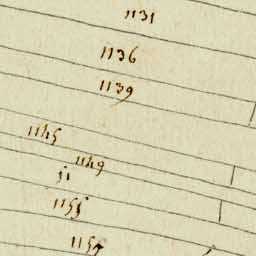 1131
1136
1139
1145
1149
51
1155
1157